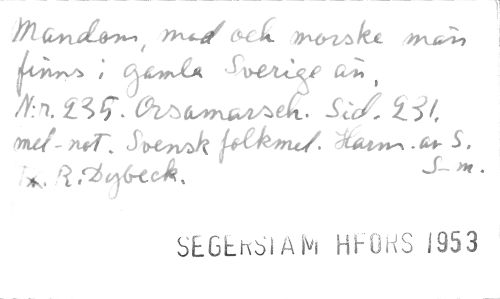 Mandom, mod och morske män
finns i gamla Sverige än,
N:r. 235. Orsamarsch. Sid. 231.
mel-not. Svensk folkmel. Harm. av S.
S-m.
R. Dybeck.
SEGERSTAM HFORS 1953